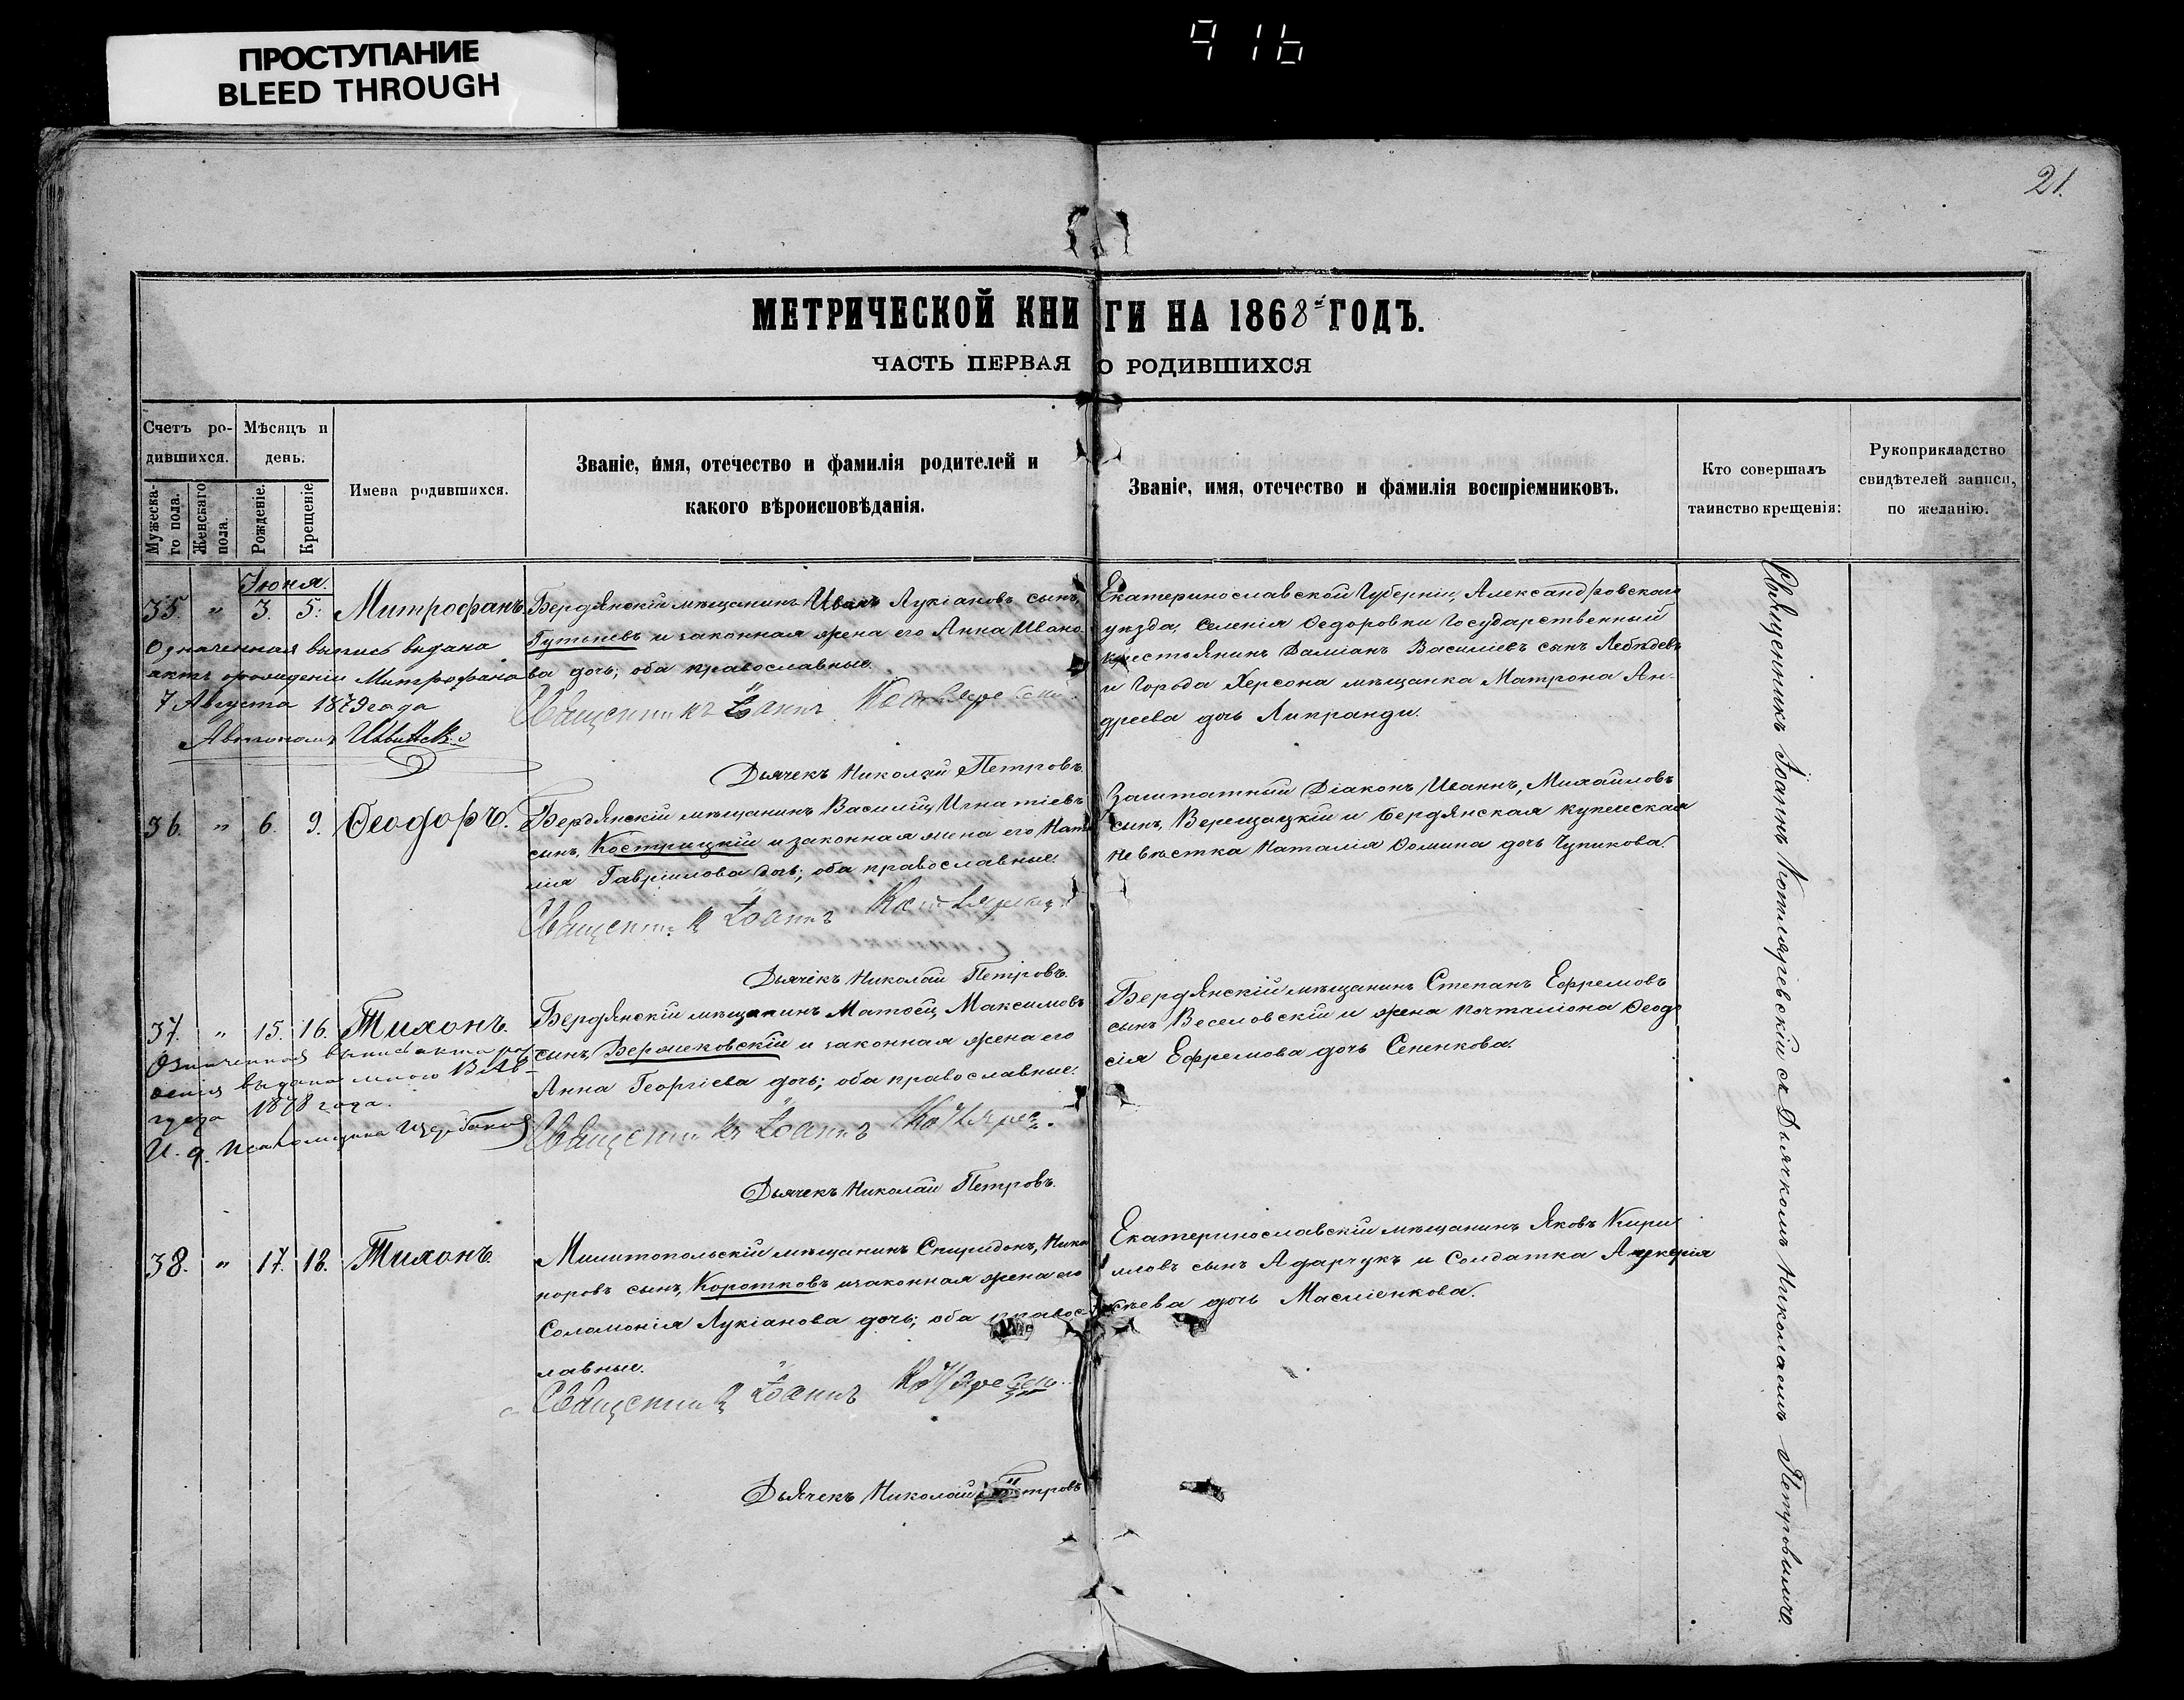 ПРОСТУПАНИЕ
BLEED THROUGH
916
21.
МЕТРИЧЕСКОЙ КНИГИ НА 1868й ГОДЪ.
ЧАСТЬ ПЕРВАЯ О РОДИВШИХСЯ
Счетъ родившихся.
Мужескаго пола.
Женскаго пола.
Мѣсяцъ и день.
Рожденіе.
Крещеніе.
Имена родившихся.
Званіе, имя, отечество и фамилія родителей и
какого вѣроисповѣданія.
Званіе, имя, отечество и фамилія воспріемниковъ.
Кто совершалъ
таинство крещенія:
Рукоприкладство
свидѣтелей записи,
по желанію.
Іюня.
35. " 3. 5. Митрофанъ
Бердянскій мѣщанинъ Иванъ Лукіановъ сынъ,
и законная жена его Анна Ивано-
ва дочь; оба православные.
Священникъ Іоаннъ
Дьячекъ Николай Петровъ.
Екатеринославской Губерніи, Александровскаго
уѣзда, Селенія Ѳедоровки Государственный
крестьянинъ Даміанъ Василіевъ сынъ Лебѣдевъ
и города Херсона мѣщанка Матрона Ан-
дреева дочь Липранди.
Означенная выпись выдана
актъ о рожденіи Митрофана
7 Августа 1879 года
36. " 6. 9. Ѳеодоръ.
Бердянскій мѣщанинъ Василій Игнатіевъ
сынъ, Кострицкій и законная жена его Ната-
лія Гавріилова дочь; оба православные.
Священникъ Іоаннъ
Дьячекъ Николай Петровъ.
Заштатный Діаконъ Иоаннъ, Михаиловъ
сынъ, Верещацкій и бердянская купеческая
невѣстка Наталія Ѳомина дочь Чупикова.
37. " 15. 16. Тихонъ.
Бердянскій мѣщанинъ Матѳей Максимовъ
сынъ, и законная жена его
Анна Георгіева дочь; оба православные.
Священникъ Іоаннъ
Дьячекъ Николай Петровъ.
Бердянскій мѣщанинъ Степанъ Ефремовъ
сынъ Веселовскій и жена почталіона Ѳеодо
сія Ефремова дочь Сененкова.
Означенная выпись акта
выдана мною
1878 года.
И. д. псаломщика
38. " 17. 18. Тихонъ.
Милитопольскій мѣщанинъ Спиридонъ, Ника
норовъ сынъ, Коротковъ и законная жена его
Соломонія Лукіанова дочь; оба правос-
лавные.
Священникъ Іоаннъ
Дьячекъ Николай Петровъ
Екатеринославскій мѣщанинъ Яковъ Кири
ловъ сынъ Адарчукъ и Солдатка
дочь Масліенкова.
Священникъ Іоаннъ Котляревскій съ Дьячкомъ Николаемъ Петровымъ.